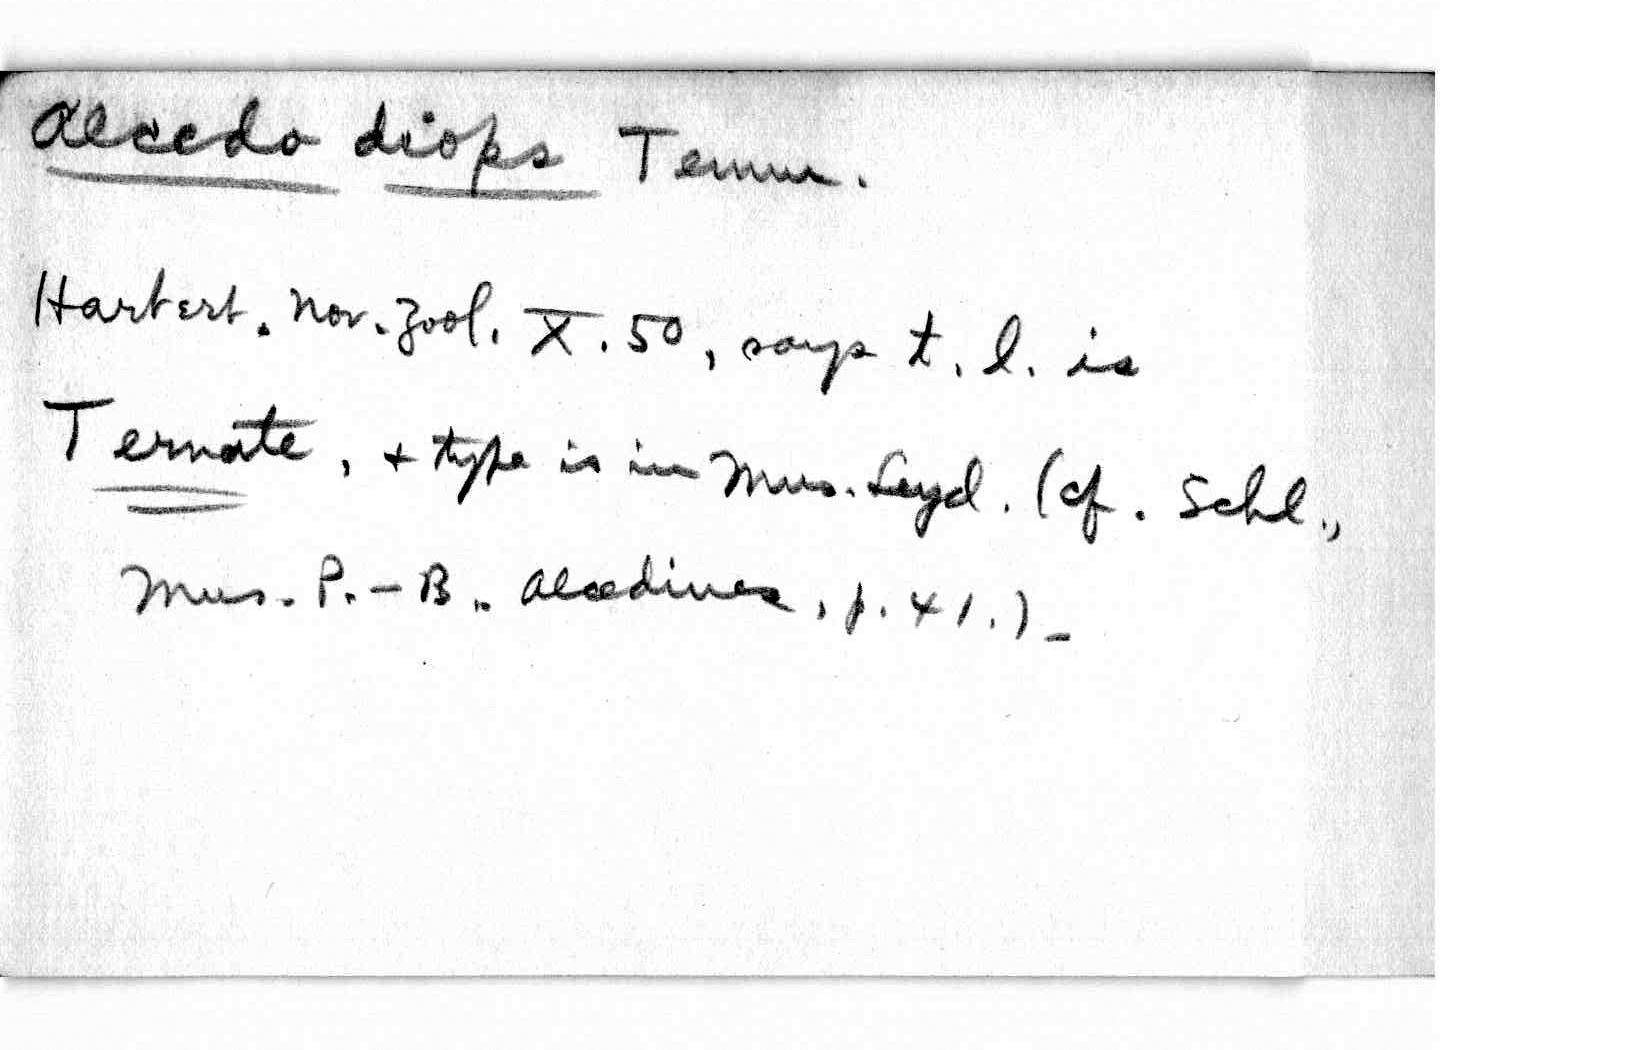 Alcedo diops Temm.
Hartert. Nov. Zool. X. 50, says t. l. is
Ternate, + type is in Mus. Leyd. (cf. Schl.,
Mus. P.-B., Alcedines, p. 41.)-